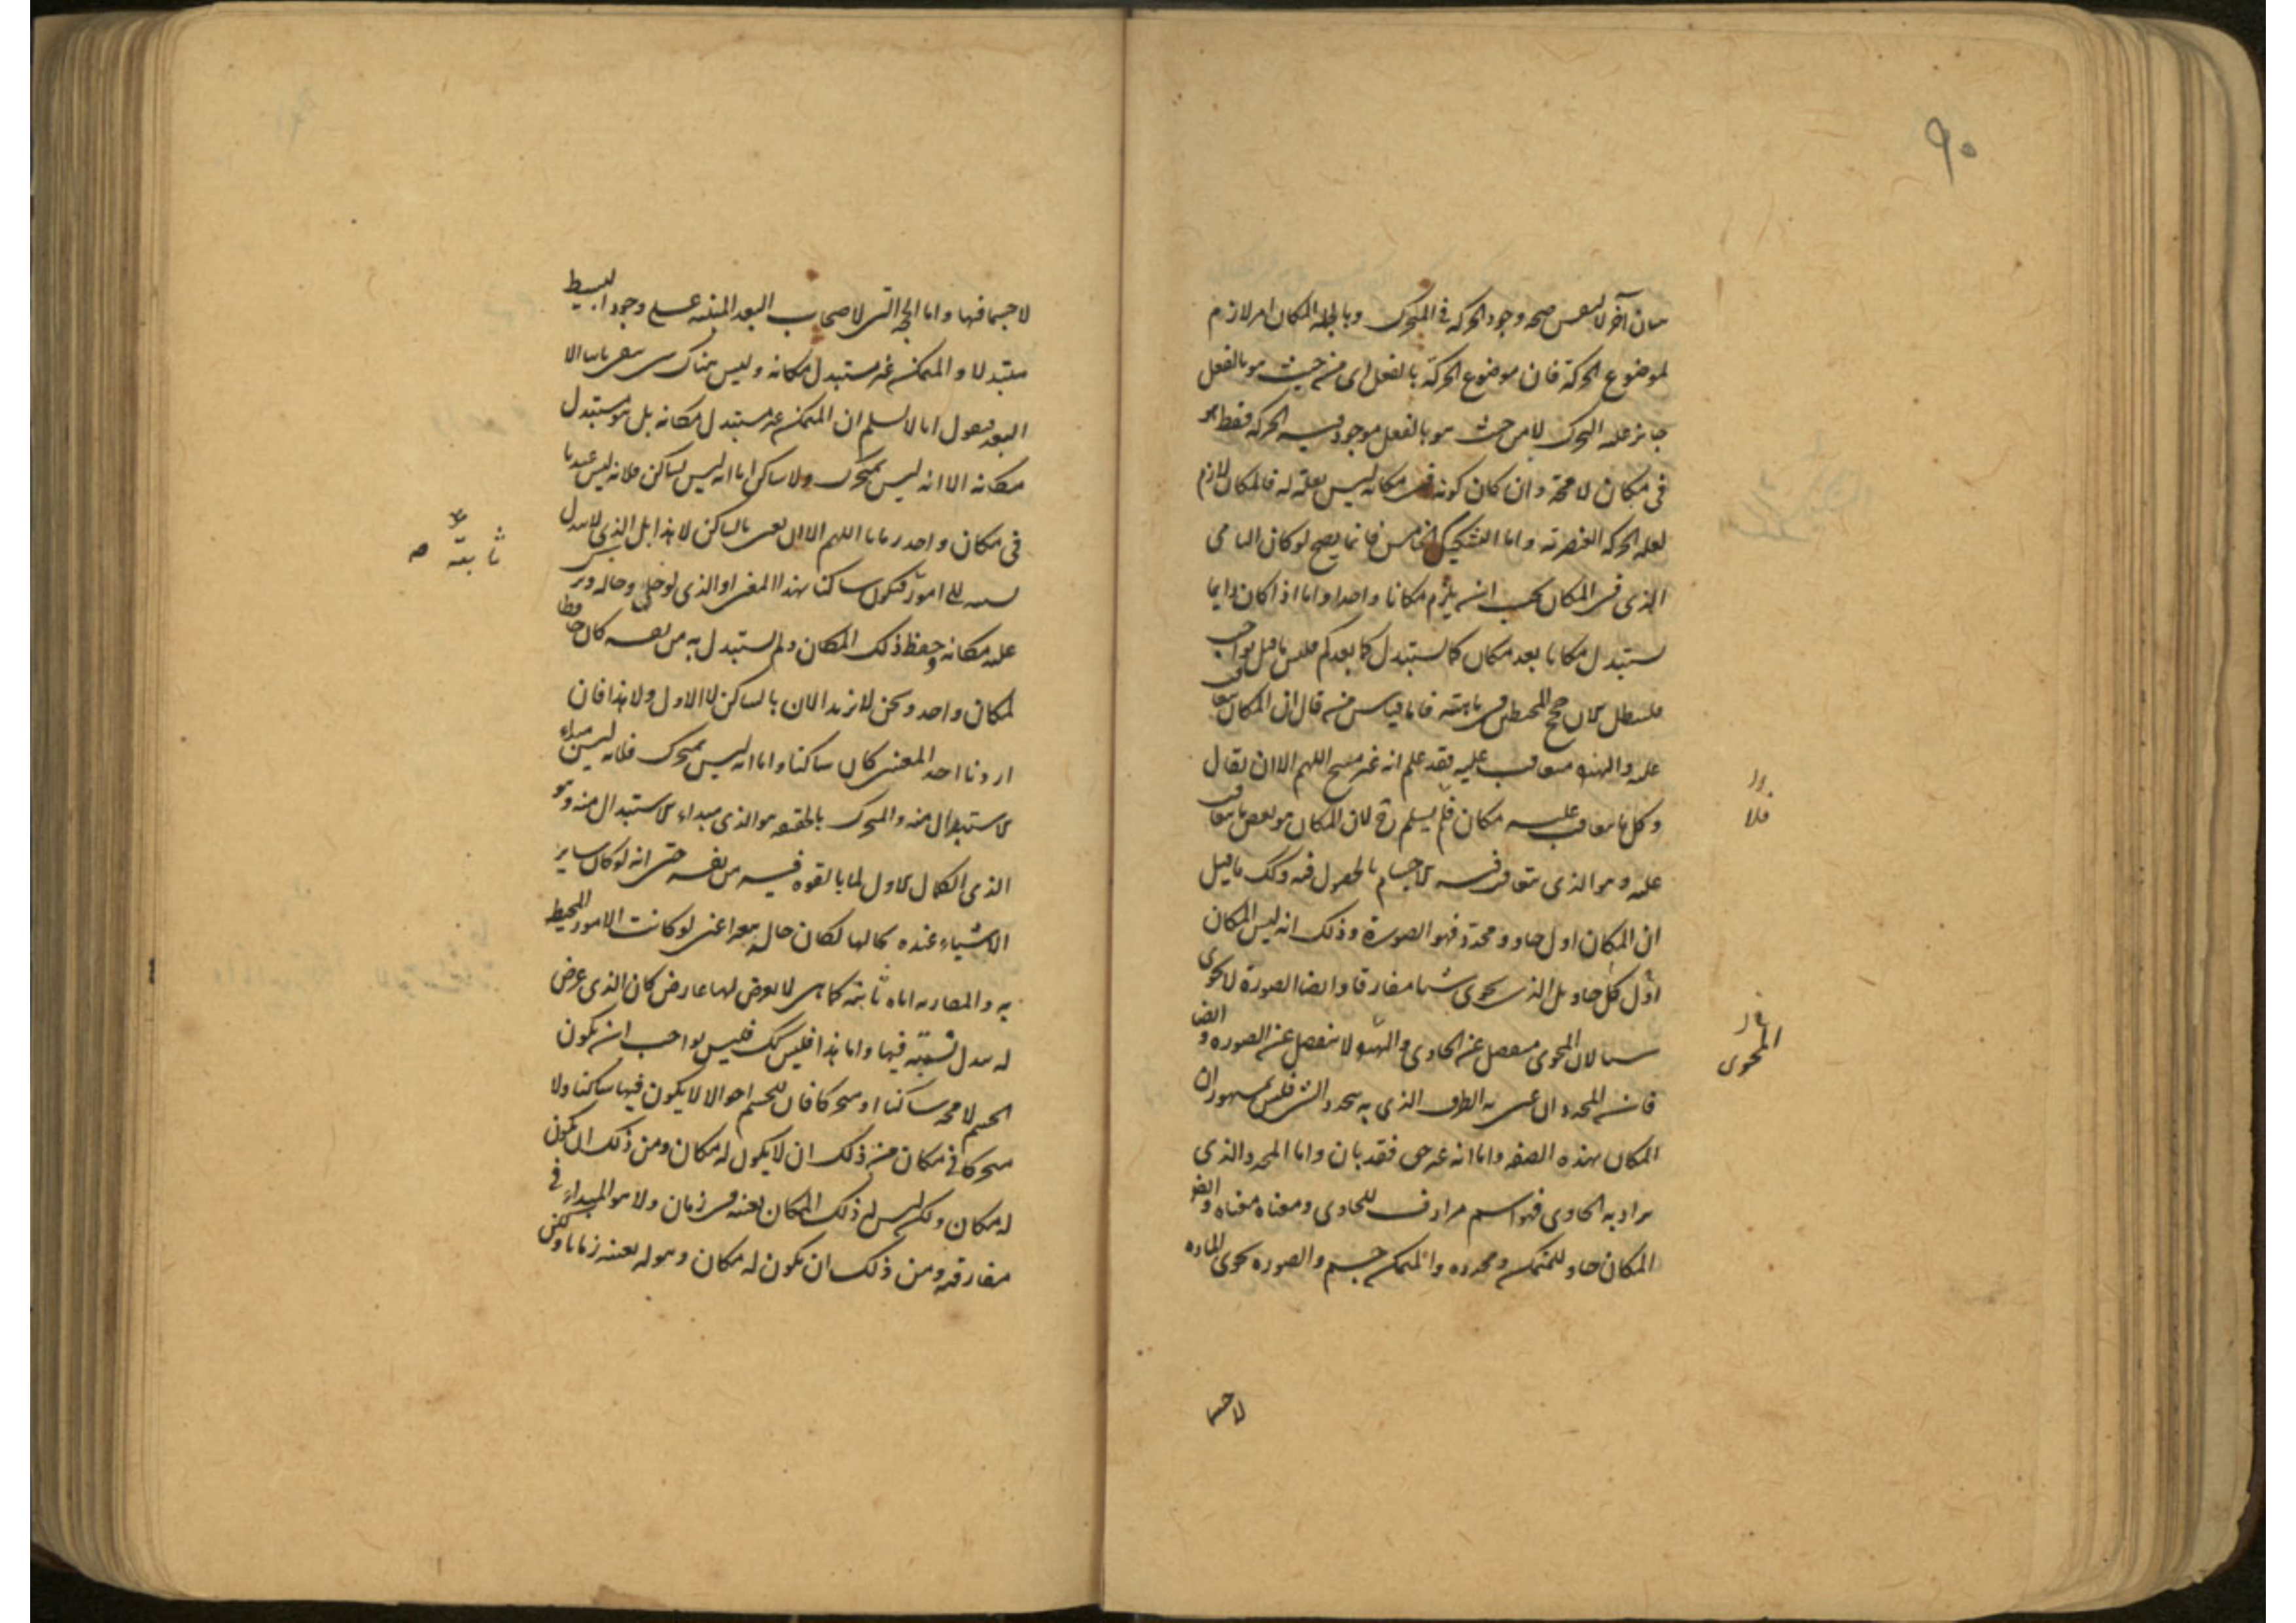 ٩٠
بيان آخر لا لنفس صحة وجود الحركة في المتحرك وبالجملة المكان امر لازم
لموضوع الحركة فان موضوع الحركة بالفعل اى من حيث هو بالفعل
جايز عليه التحرك لا من حيث هو بالفعل موجود فيه الحركة فقط هو
في مكان لا محة وان كان كونه في مكانه ليس بعلة له فالمكان لازم
لعلة الحركة العنصرية واما التشكيك الخامس فانما يصح لو كان النامى
الذى في المكان يجب ان يلزم مكانا واحدا واما اذا كان دايما
يستبدل مكانا بعد مكان كما يستبدل كما بعد كم فليس ما قيل بواجب
فلنبطل الان حجج المحطين في ماهيته فاما قياس من قال ان المكان يتعاقب
عليه والهيولى متعاقب عليه فقد علم انه غير منتج اللهم الا ان يقال
وكل ما يتعاقب عليه مكان فلم يسلم ح لان المكان هو بعض ما يتعاقب
عليه وهو الذى يتعاقب فيه الاجسام بالحصول فيه وكك ما قيل
ان المكان اول حاو ومحدد فهو الصورة وذلك انه ليس المكان
اول كل حاو بل الذى يحوى شيئا مفارقا وايضا الصورة لا تحوى
شيئا لان المحوى منفصل عن الحاوى والهيولى لا ينفصل عن الصورة وايضا
فان المحدد ان عنى به الطرف الذى به يتحدد الشى فليس بمشهور ان
المكان بهذه الصفة واما انه غير حق فقد بان واما المحدد الذى
يراد به الحاوى فهو اسم مرادف للحاوى ومعناه معناه وايضا
المكان حاو للمتمكن ومحدده والمتمكن جسم والصورة تحوى المادة
فلا
المحوى
لا جسما
لا جسما فيها واما الحجة التى لاصحاب البعد المبنية على وجود البسيط
متبدلا والمتمكن غير مستبدل مكانه وليس هناك شى يبقى ثابتا الا
البعد فنقول انا لا نسلم ان المتمكن غير مستبدل مكانه بل هو مستبدل
مكانه الا انه ليس بمتحرك ولا ساكن اما انه ليس بساكن فلانه ليس عندنا
في مكان واحد زمانا اللهم الا ان يعنى بالساكن لا هذا بل الذى لا يتبدل
نسبته الى امور فيكون ساكنا بهذا المعنى او الذى لو خلى وحاله وترك
عليه مكانه وحفظ ذلك المكان ولم يستبدل به من نفسه كان حافظا
لمكان واحد ونحن لا نريد الان بالساكن لا الاول ولا هذا فان
اردنا احد المعنيين كان ساكنا واما انه ليس بمتحرك فلانه ليس مبداء
الاستبدال منه والمتحرك بالحقيقة هو الذى مبداء الاستبدال منه وهو
الذى الكمال الاول لما بالقوة فيه من نفسه حتى انه لو كان ساير
الاشياء عنده بحالها لكان حاله يتغير اعنى لو كانت الامور المحيطة
به والمقاربة اياه ثابتة كما هى لا يعرض لها عارض كان الذى عرض
له تبدل نسبته فيها واما هذا فليس كك فليس بواجب ان يكون
الجسم لا محة ساكنا او متحركا فان للجسم احوالا لا يكون فيها ساكنا ولا
متحركا في مكان من ذلك ان لا يكون له مكان ومن ذلك ان يكون
له مكان ولكن ليس له ذلك المكان بعينه في زمان ولا هو المبداء في
مفارقته ومن ذلك ان يكون له مكان وهو له بعينه زمانا ولكن
ثابتة